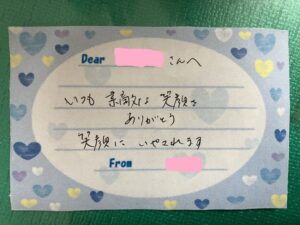 Dear さんへ
いつも素敵な笑顔を
ありがとう
笑顔にいやされます
From